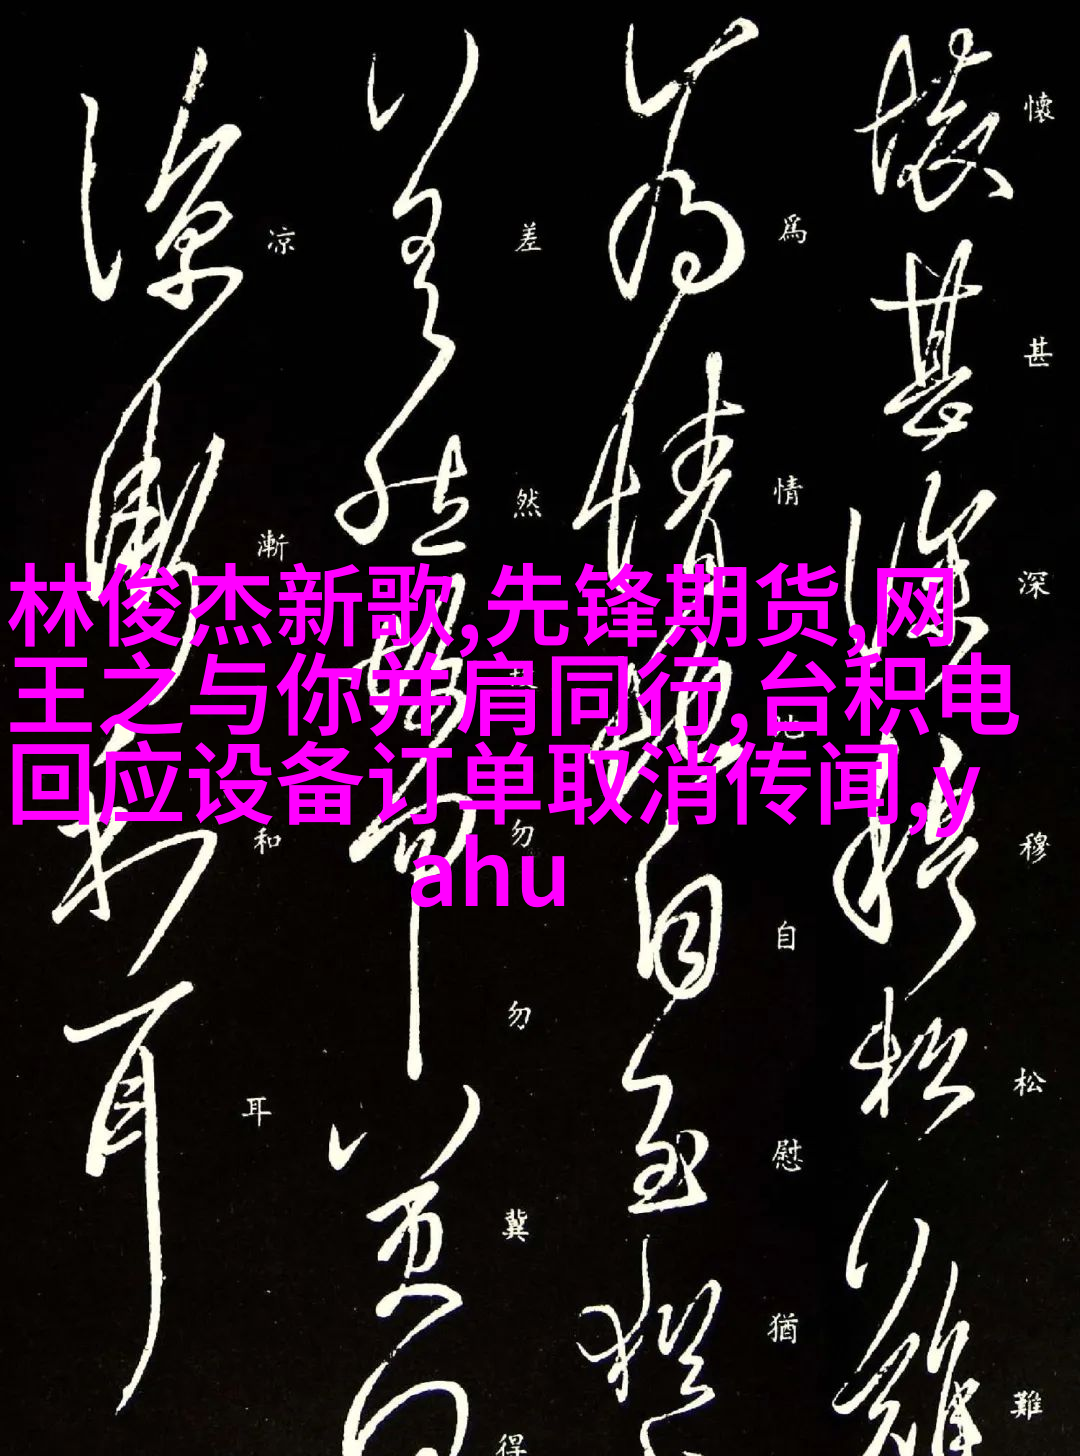 林俊杰新歌,先锋期货,网
王之与你并肩同行,台积电
回应设备订单取消传闻,y
ahu
懷甚深穆松難
爲情地自慰猶
差然勿勿冀得
凉漸和耳